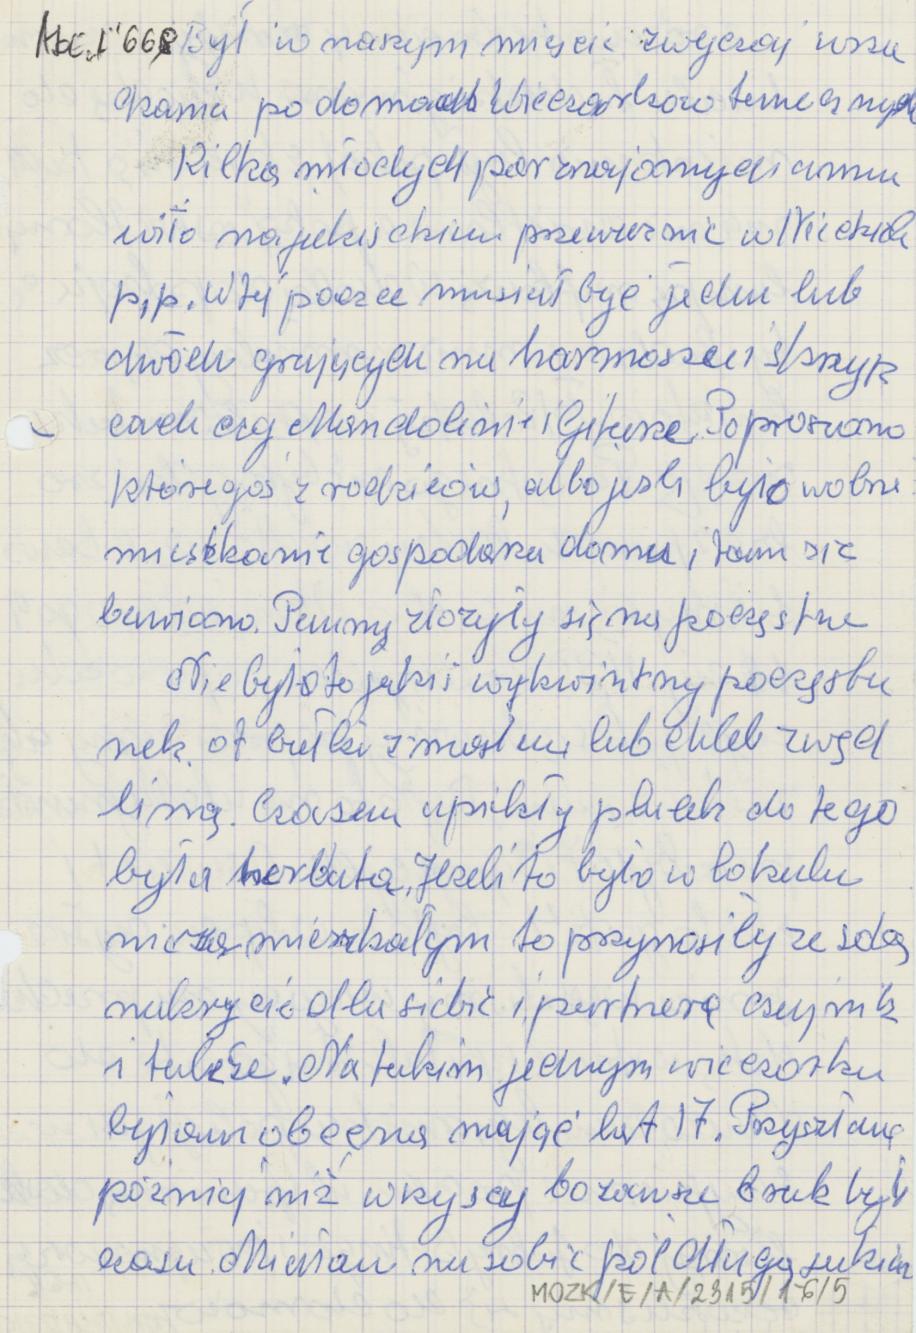 Był w naszym mieście zwyczaj urzą
dzania po domach Wieczorków tanecznych
Kilka młodych par znajomych umu
wiło na jakiś dzień przeważnie w Niedziele
p,p. W tej paczce musiał być jeden lub
dwóch grających na harmoszce i skrzyp
cach czy Mandolinie i Gitarze. Poproszono
któregoś z rodziców, albo jeśli było wolne
mieszkanie gospodarza domu i tam się
bawiono. Panny złożyły się na poczęstne
Nie był to jakiś wykwintny poczęstu
nek. ot bułki z masłem lub chleb z węd
liną. Czasem upiekły placek do tego
była herbata. Jeżeli to było w lokalu
nie zamieszkałym to przynosiły ze sobą
nakrycie dla siebie i partnera czajnik
i talerze. Na takim jednym wieczorku
byłam obecna mając lat 17. Przyszłam
później niż wszyscy bo zawsze brak był
czasu. Miałam na sobie pół długą sukien
MOZK/E/A/2315/1-6/5